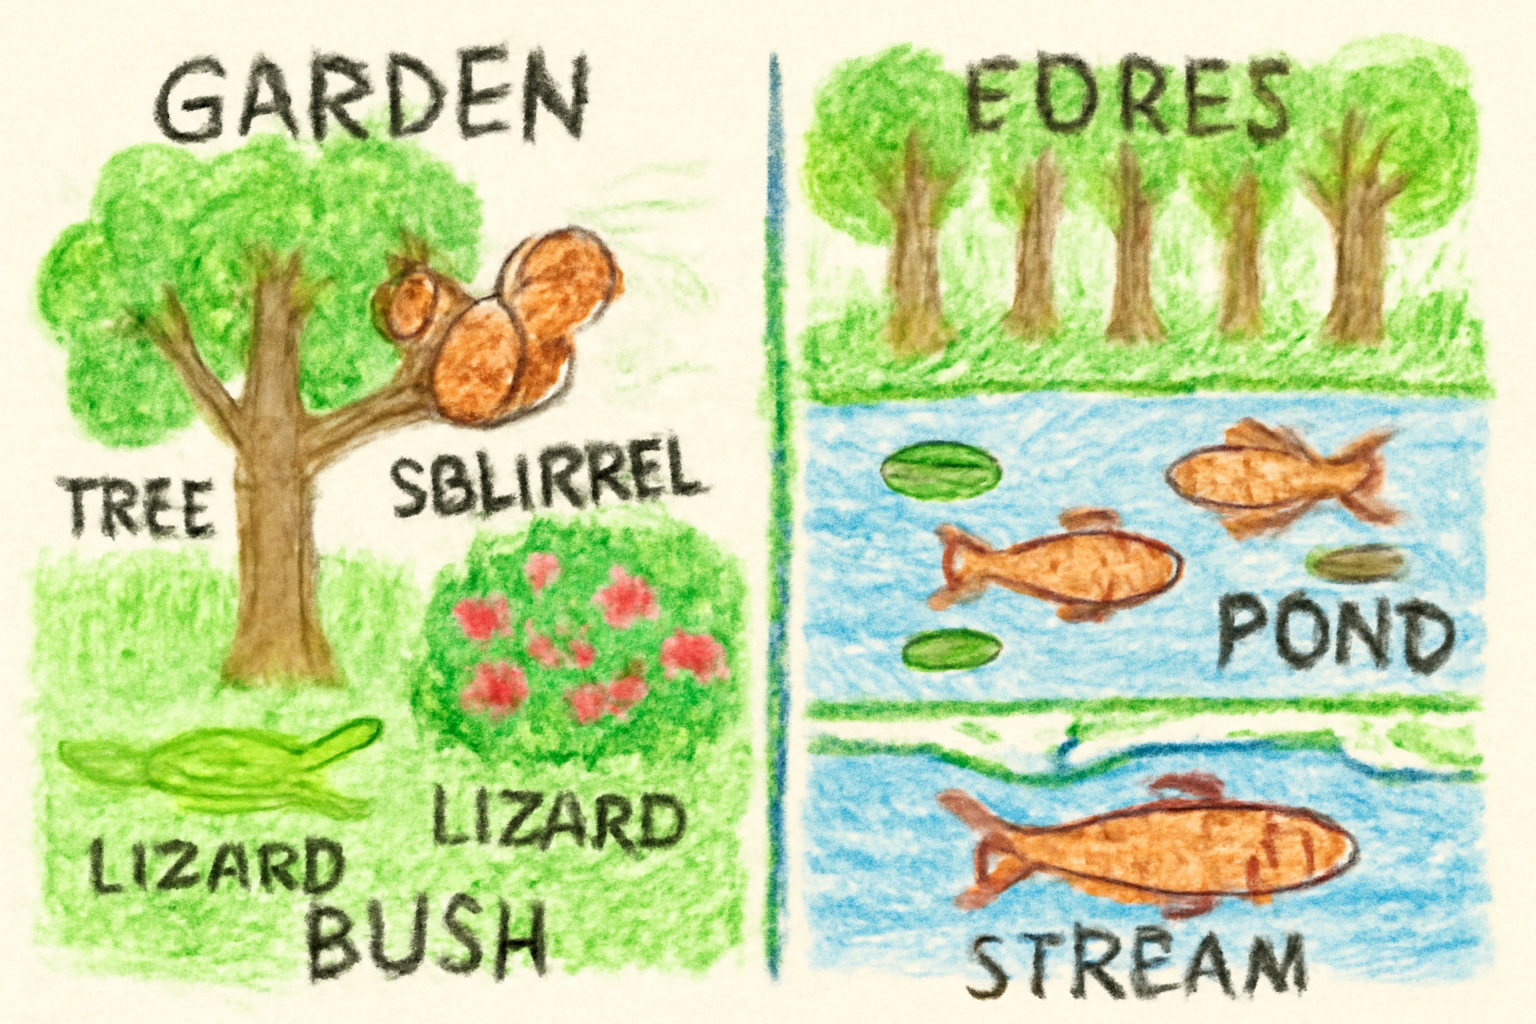 GARDEN
TREE
SBLIRREL
LIZARD
LIZARD
BUSH
EORES
POND
STREAM